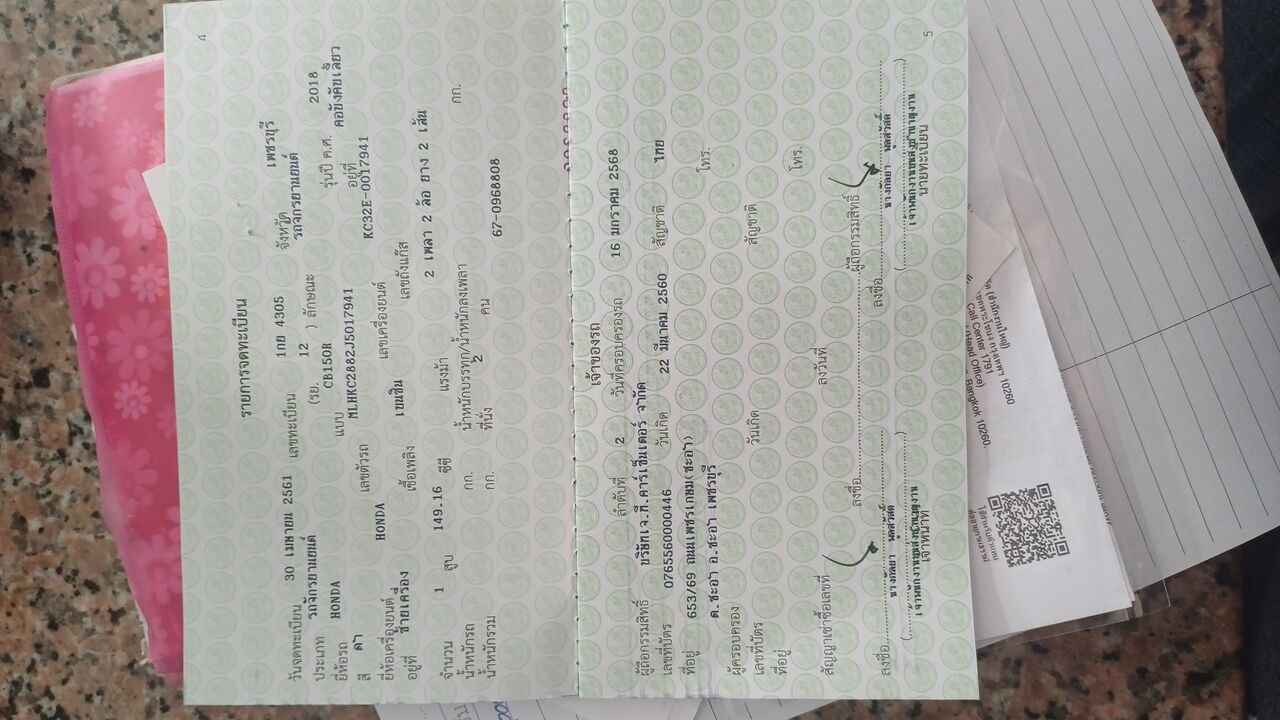 4
รายการจดทะเบียน
วันจดทะเบียน 30 เมษายน 2561 เลขทะเบียน 1กย 4305 จังหวัด เพชรบุรี
ประเภท รถจักรยานยนต์ (รย. 12 ) ลักษณะ รถจักรยานยนต์
ยี่ห้อรถ HONDA แบบ CB150R รุ่นปี ค.ศ. 2018
สี ดำ เลขตัวรถ MLHKC2882J5017941 อยู่ที่ คอขังคับเลี้ยว
ยี่ห้อเครื่องยนต์ HONDA เลขเครื่องยนต์ KC32E-0017941
อยู่ที่ ซ้ายเครื่อง เชื้อเพลิง เบนซิน เลขถังแก๊ส
จำนวน 1 สูบ 149.16 ซีซี แรงม้า 2 เพลา 2 ล้อ ยาง 2 เส้น
น้ำหนักรถ กก. น้ำหนักบรรทุก/น้ำหนักลงเพลา กก.
น้ำหนักรวม กก. ที่นั่ง 2 คน 67-0968808
เจ้าของรถ
ลำดับที่ 2 วันที่ครอบครองรถ 16 มกราคม 2568
ผู้ถือกรรมสิทธิ์ บริษัทเจ.ที.คาร์เซ็นเตอร์ จำกัด
เลขที่บัตร 0765560000446 วันเกิด 22 มีนาคม 2560 สัญชาติ ไทย
ที่อยู่ 653/69 ถนนเพชรเกษม(ชะอำ)
ต.ชะอำ อ.ชะอำ เพชรบุรี โทร.
ผู้ครอบครอง
เลขที่บัตร วันเกิด สัญชาติ
ที่อยู่ โทร.
สัญญาเช่าซื้อเลขที่ ลงวันที่
ลงชื่อ ผู้ถือกรรมสิทธิ์
ลงชื่อ ลงชื่อ
เจ้าหน้าที่ นายทะเบียน
5
(สำนักงานใหญ่)
เขตพระโขนง กรุงเทพฯ 10260
Call Center 1791
(Head Office)
Bangkok 10260.